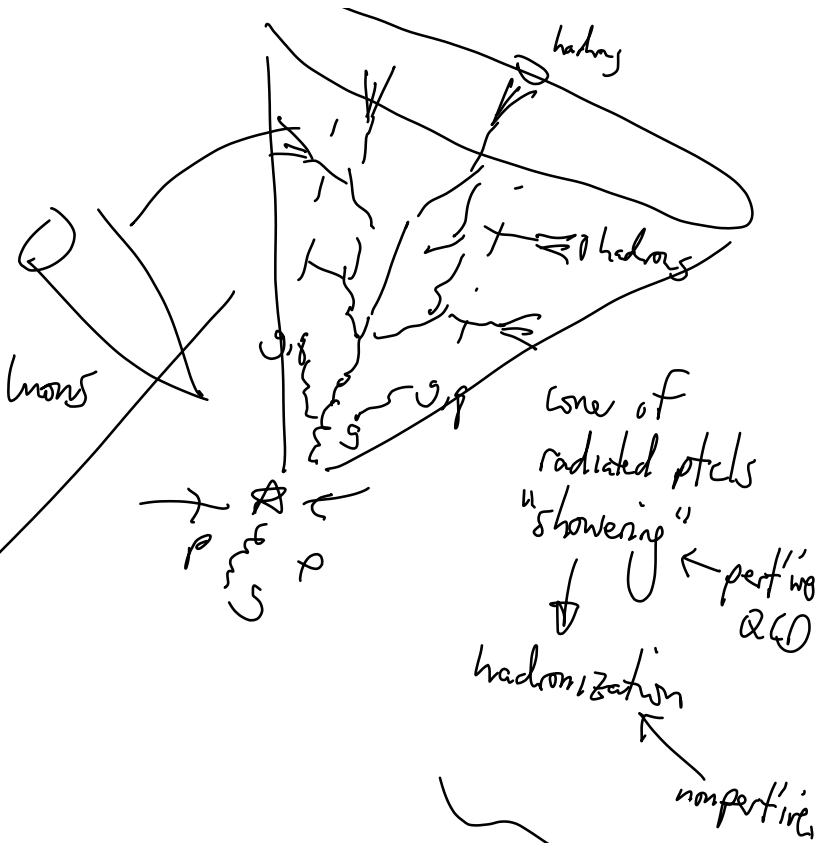 hadrons
hadrons
g,q
g,q
g
p
p
g
cone of
radiated ptcls
"showering"
pert'ive
QCD
hadronization
nonpert'ive